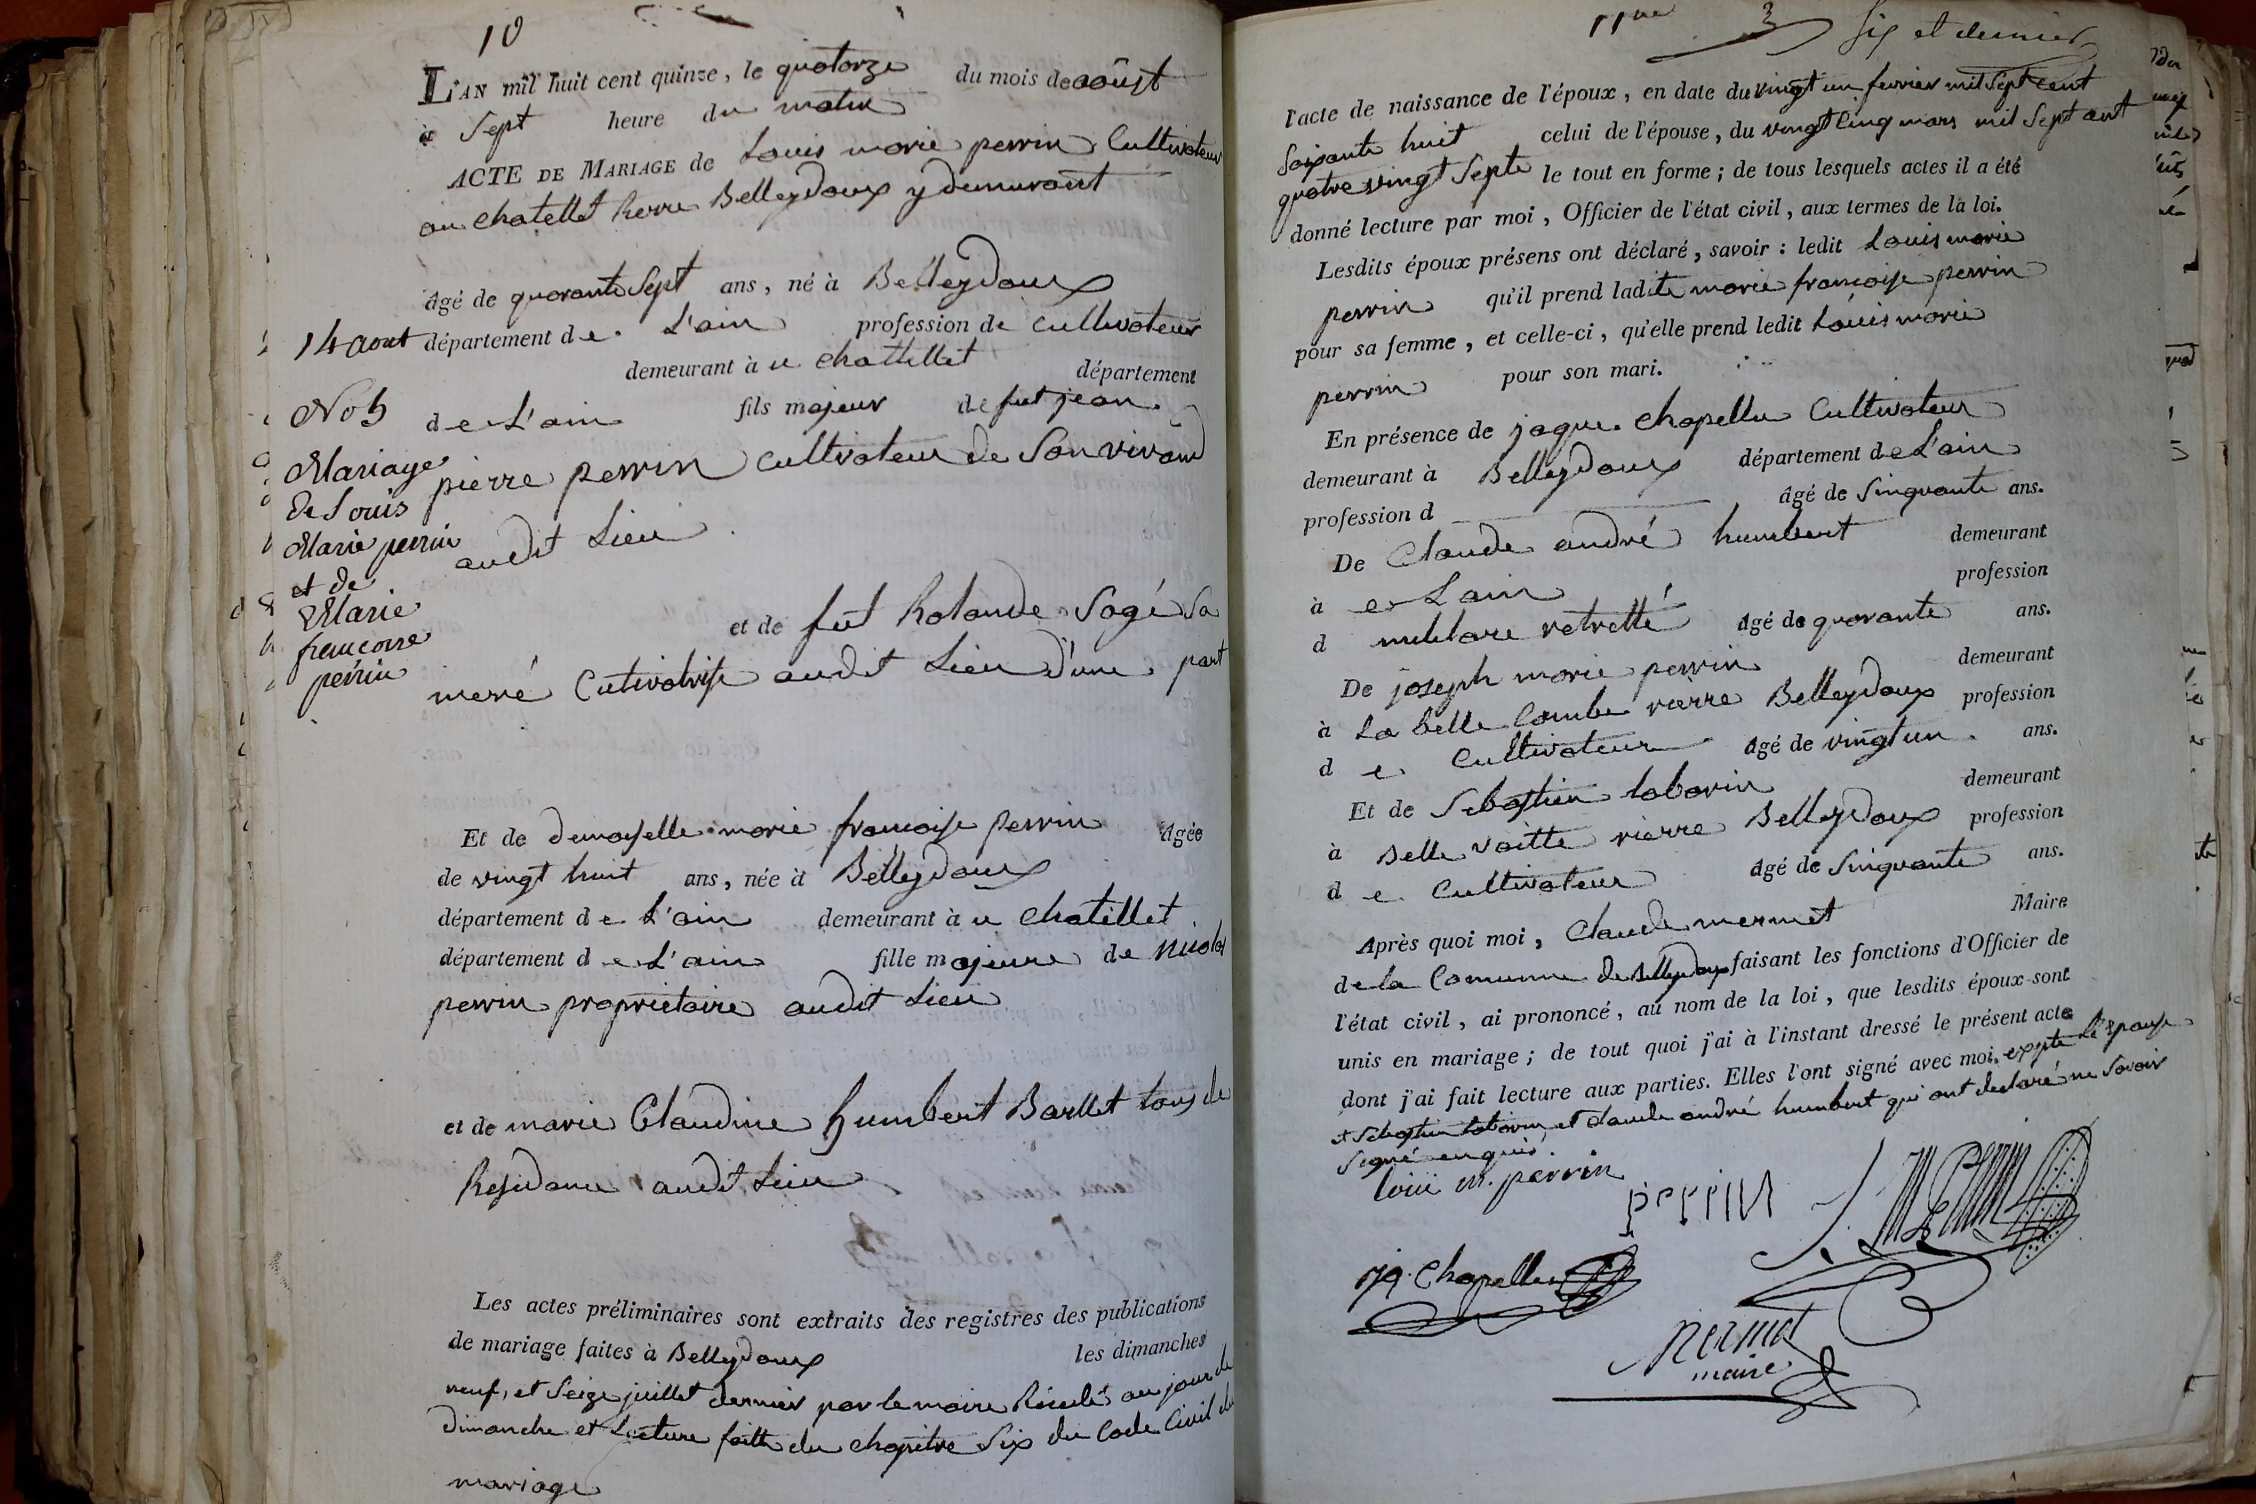 10
L'AN mil huit cent quinze, le quotorze du mois de août
à Sept heure du matin
ACTE DE MARIAGE de Louis marie perrin Cultivateur
au chatellet Rierre Belleydoux y demeurant
âgé de quarante Sept ans, né à Belleydoux
14 aout
département de L'ain profession de cultivateur
demeurant à u chattillet département
No 5
de L'ain fils majeur de fut jean
Mariage
De Louis
Marie perrin
et de
Marie
francoise
perrin
pierre perrin cultivateur de Son vivant
audit Lieu
et de fut Rolande Sogé Sa
meré Cultivatrise audit Lieu D'une part
Et de demoyselle marie françoise perrin âgée
de vingt huit ans, née à Belleydoux
département de L'ain demeurant à u chatillet
département de L'ain fille majeure de Nicolas
perrin proprietaire audit Lieu
et de marie Claudine humbert Barllet tous de
Residance audit Lieu
Les actes préliminaires sont extraits des registres des publications
de mariage faites à Belleydoux les dimanches
neuf, et Seize juillet dernier par le maire au jour de
dimanche et Lecture faitte du chapitre Six du Code Civil du
mariage
11me 3 six et dernier
l'acte de naissance de l'époux, en date du vingt un fevrier mil Sept cent
Soixante huit celui de l'épouse, du vingt Cinq mars mil Sept cent
quatre vingt Septe le tout en forme; de tous lesquels actes il a été
donné lecture par moi, Officier de l'état civil, aux termes de la loi.
Lesdits époux présens ont déclaré, savoir: ledit Louis marie
perrin qu'il prend ladite marie françoise perrin
pour sa femme, et celle-ci, qu'elle prend ledit Louis marie
perrin pour son mari.
En présence de jaque chapellu Cultivateur
demeurant à Belleydoux département de L'ain
profession d âgé de Sinquante ans.
De Claude andré humbert demeurant
à e Lain profession
d militaire retretté âgé de quarante ans.
De joseph marie perrin demeurant
à La belle Combe rierre Belleydoux profession
d e Cultivateur âgé de vingt un ans.
Et de Sebastien taborin demeurant
à Belle Voitte rierre Belleydoux profession
d e Cultivateur âgé de Sinquante ans.
Après quoi moi, Claude mermet Maire
de la Comunne de Belleydoux faisant les fonctions d'Officier de
l'état civil, ai prononcé, au nom de la loi, que lesdits époux sont
unis en mariage; de tout quoi j'ai à l'instant dressé le présent acte
dont j'ai fait lecture aux parties. Elles l'ont signé avec moi. expte L'epouse
et Sebastien taborin et claude andré humbert qui ont declaré ne Savoir
Signé enquis
loüi m. perrin
perrin
Chapellu
mermet
maire